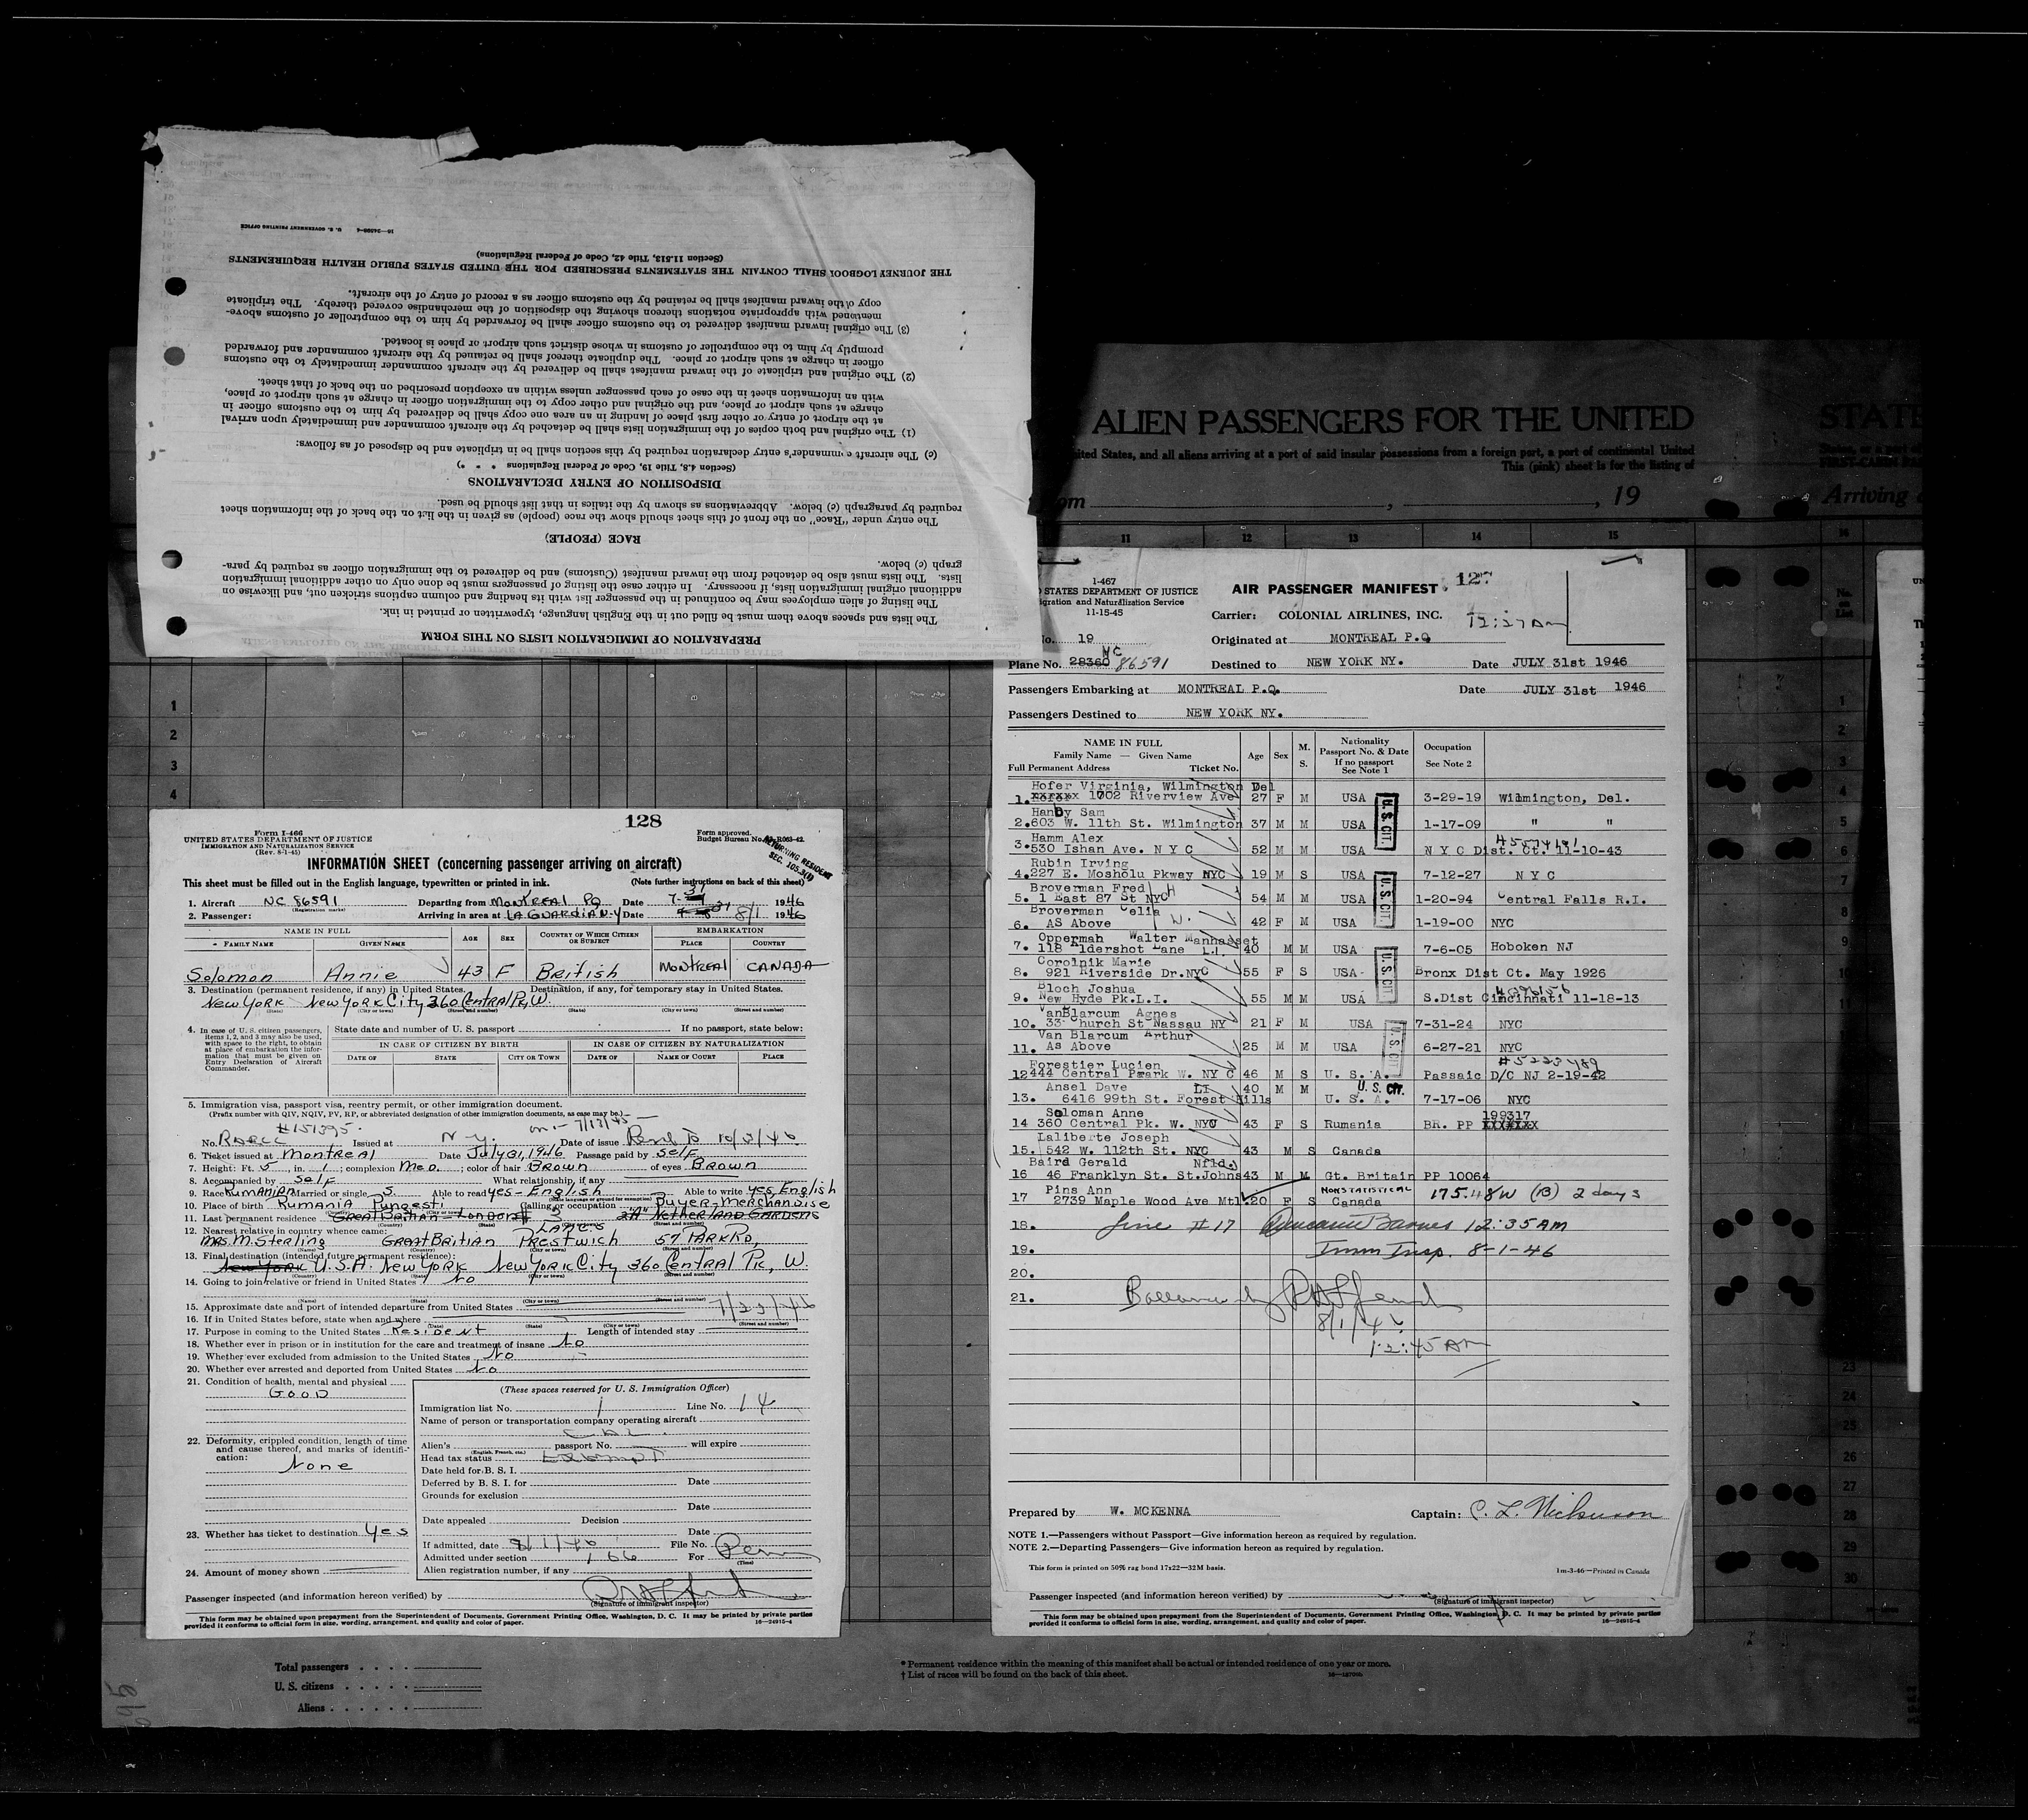 16—24202-4 U. S. GOVERNMENT PRINTING OFFICE
PREPARATION OF IMMIGRATION LISTS ON THIS FORM
The lists and spaces above them must be filled out in the English language, typewritten or printed in ink.
The listing of alien employees may be continued in the passenger list with its heading and column captions stricken out, and likewise on
additional original immigration lists, if necessary. In either case the listing of passengers must be done only on other additional immigration
lists. The lists must also be detached from the inward manifest (Customs) and be delivered to the immigration officer as required by para-
graph (c) below.
RACE (PEOPLE)
The entry under "Race" on the front of this sheet should show the race (people) as given in the list on the back of the information sheet
required by paragraph (c) below. Abbreviations as shown by the italics in that list should be used.
DISPOSITION OF ENTRY DECLARATIONS
(Section 4.3, Title 19, Code of Federal Regulations * * *)
(c) The aircraft commander's entry declaration required by this section shall be in triplicate and be disposed of as follows:
(1) The original and both copies of the immigration lists shall be detached by the aircraft commander and immediately upon arrival
at the airport of entry or other first place of landing in an area one copy shall be delivered by him to the customs officer in
charge at such airport or place, and the original and other copy to the immigration officer in charge at such airport or place,
with an information sheet in the case of each passenger unless within an exception prescribed on the back of that sheet.
(2) The original and triplicate of the inward manifest shall be delivered by the aircraft commander immediately to the customs
officer in charge at such airport or place. The duplicate thereof shall be retained by the aircraft commander and forwarded
promptly by him to the comptroller of customs in whose district such airport or place is located.
(3) The original inward manifest delivered to the customs officer shall be forwarded by him to the comptroller of customs above-
mentioned with appropriate notations thereon showing the disposition of the merchandise covered thereby. The triplicate
copy of the inward manifest shall be retained by the customs officer as a record of entry of the aircraft.
THE JOURNEY LOGBOOK SHALL CONTAIN THE STATEMENTS PRESCRIBED FOR THE UNITED STATES PUBLIC HEALTH REQUIREMENTS
(Section 11.513, Title 42, Code of Federal Regulations)
ALIEN PASSENGERS FOR THE UNITED STATE
ited States, and all aliens arriving at a port of said insular possessions from a foreign port, a port of continental United
This (pink) sheet is for the listing of
om , , 19 Arriving
11 12 13 14 15 16
1
2
3
4
128
Form I-466
UNITED STATES DEPARTMENT OF JUSTICE
IMMIGRATION AND NATURALIZATION SERVICE
(Rev. 8-1-45)
Form approved.
Budget Bureau No. 43-R063-42.
RETURNING RESIDENT
SEC. 105.3(1)
INFORMATION SHEET (concerning passenger arriving on aircraft)
This sheet must be filled out in the English language, typewritten or printed in ink. (Note further instructions on back of this sheet)
1. Aircraft NC 86591 Departing from Montreal PQ Date 7-31 1946
(Registration marks)
2. Passenger: Arriving in area at LA GUARDIA N.Y Date 8/1 1946
NAME IN FULL AGE SEX COUNTRY OF WHICH CITIZEN OR SUBJECT EMBARKATION
FAMILY NAME GIVEN NAME PLACE COUNTRY
Soloman Annie 43 F British MONTREAL CANADA
3. Destination (permanent residence, if any) in United States. Destination, if any, for temporary stay in United States.
New York New York City 360 Central Pk, W.
(State) (City or town) (Street and number) (State) (City or town) (Street and number)
4. In case of U. S. citizen passengers, items 1, 2, and 3 may also be used, with space to the right, to obtain at place of embarkation the information that must be given on Entry Declaration of Aircraft Commander.
State date and number of U. S. passport If no passport, state below:
IN CASE OF CITIZEN BY BIRTH IN CASE OF CITIZEN BY NATURALIZATION
DATE OF STATE CITY OR TOWN DATE OF NAME OF COURT PLACE
5. Immigration visa, passport visa, reentry permit, or other immigration document.
(Prefix number with QIV, NQIV, PV, RP, or abbreviated designation of other immigration documents, as case may be.)
#151395 7/13/45
No. Issued at N-y. Date of issue
6. Ticket issued at Montreal Date July 31, 1946 Passage paid by Self
7. Height: Ft. 5, in. 1; complexion Med.; color of hair Brown of eyes Brown
8. Accompanied by self What relationship, if any,
9. Race Rumanian Married or single S. Able to read yes - English Able to write yes, English
10. Place of birth Rumania Pungesti Calling or occupation Buyer-Merchandise
11. Last permanent residence Great Britian - London # 3 "A" Netherland Gardens
LANES
12. Nearest relative in country whence came:
Mrs. M. Sterling Great Britian Prestwich 57 Park Rd,
(Name) (Country) (City or town) (Street and number)
13. Final destination (intended future permanent residence):
New York U.S.A. New York New York City 360 Central Pk, W.
(Country) (State) (City or town) (Street and number)
14. Going to join relative or friend in United States No
(Name) (State) (City or town) (Street and number)
15. Approximate date and port of intended departure from United States 7/23/46
16. If in United States before, state when and where
17. Purpose in coming to the United States Resident Length of intended stay
18. Whether ever in prison or in institution for the care and treatment of insane No
19. Whether ever excluded from admission to the United States No
20. Whether ever arrested and deported from United States No
21. Condition of health, mental and physical
GOOD
22. Deformity, crippled condition, length of time and cause thereof, and marks of identification:
None
23. Whether has ticket to destination yes
24. Amount of money shown
(These spaces reserved for U. S. Immigration Officer)
Immigration list No. 1 Line No. 14
Name of person or transportation company operating aircraft
Alien's passport No. will expire
(English, French, etc.)
Head tax status Exempt
Date held for B. S. I.
Deferred by B. S. I. for Date
Grounds for exclusion
Date
Date appealed Decision
Date
If admitted, date 8/1/46 File No.
Admitted under section 166 For Perm
(Time)
Alien registration number, if any
Passenger inspected (and information hereon verified) by
(Signature of immigrant inspector)
This form may be obtained upon prepayment from the Superintendent of Documents, Government Printing Office, Washington, D. C. It may be printed by private parties
provided it conforms to official form in size, wording, arrangement, and quality and color of paper. 16—24915-4
I-467
STATES DEPARTMENT OF JUSTICE
igration and Naturalization Service
11-15-45
AIR PASSENGER MANIFEST 127
Carrier: COLONIAL AIRLINES, INC. 12:27 AM
No. 19 Originated at MONTREAL P.Q
Plane No. 28360 NC 86591 Destined to NEW YORK NY. Date JULY 31st 1946
Passengers Embarking at MONTREAL P.Q. Date JULY 31st 1946
Passengers Destined to NEW YORK NY.
NAME IN FULL
Family Name — Given Name
Full Permanent Address Ticket No.
Age Sex M. S.
Nationality Passport No. & Date If no passport See Note 1
Occupation See Note 2
Hofer Virginia, Wilmington Del
1. 1702 Riverview Ave 27 F M USA 3-29-19 Wilmington, Del.
Handy Sam
2. 603 W. 11th St. Wilmington 37 M M USA 1-17-09 " "
Hamm Alex
3. 530 Ishan Ave. N Y C 52 M M USA N Y C Dist. Ct. 11-10-43
Rubin Irving
4. 227 E. Mosholu Pkway NYC 19 M S USA 7-12-27 N Y C
Broverman Fred H
5. 1 East 87 St NYC 54 M M USA 1-20-94 Central Falls R.I.
Broverman Celia W.
6. AS Above 42 F M USA 1-19-00 NYC
Oppermah Walter Manhasset
7. 118 Aldershot Lane L.I. 40 M M USA 7-6-05 Hoboken NJ
Corolnik Marie
8. 921 Riverside Dr.NYC 55 F S USA Bronx Dist Ct. May 1926
Bloch Joshua
9. New Hyde Pk.L.I. 55 M M USA S.Dist Cincinnati 11-18-13
VanBlarcum Agnes
10. 33 Church St Nassau NY 21 F M USA 7-31-24 NYC
Van Blarcum Arthur
11. As Above 25 M M USA 6-27-21 NYC
Forestier Lucien #5223489
12 444 Central Paark W. NY C 46 M S U. S. A. Passaic D/C NJ 2-19-42
Ansel Dave LI 40 M M U.S. CIT.
13. 6416 99th St. Forest Hills U. S. A. 7-17-06 NYC
Soloman Anne 199317
14 360 Central Pk. W. NYC 43 F S Rumania BR. PP XXXXXXX
Laliberte Joseph
15. 542 W. 112th St. NYC 43 M S Canada
Baird Gerald Nfld.
16 46 Franklyn St. St.Johns 43 M M Gt. Britain PP 10064
Pins Ann NONSTATISTICAL 175.48W (B) 2 days
17 2739 Maple Wood Ave Mtl. 20 F S Canada
U.S. CIT.
U.S. CIT.
U.S. CIT.
U.S. CIT.
18. Line #17 Barnes 12:35 AM
19. Imm Insp. 8-1-46
20.
21. Ballance by
8/1/46
12:45 AM
Prepared by W. MCKENNA Captain:
NOTE 1.—Passengers without Passport—Give information hereon as required by regulation.
NOTE 2.—Departing Passengers—Give information hereon as required by regulation.
This form is printed on 50% rag bond 17x22—32M basis. 1m-3-46—Printed in Canada
Passenger inspected (and information hereon verified) by
(Signature of immigrant inspector)
This form may be obtained upon prepayment from the Superintendent of Documents, Government Printing Office, Washington, D. C. It may be printed by private parties
provided it conforms to official form in size, wording, arrangement, and quality and color of paper. 16—24915-4
Total passengers
U. S. citizens
Aliens
* Permanent residence within the meaning of this manifest shall be actual or intended residence of one year or more.
† List of races will be found on the back of this sheet.